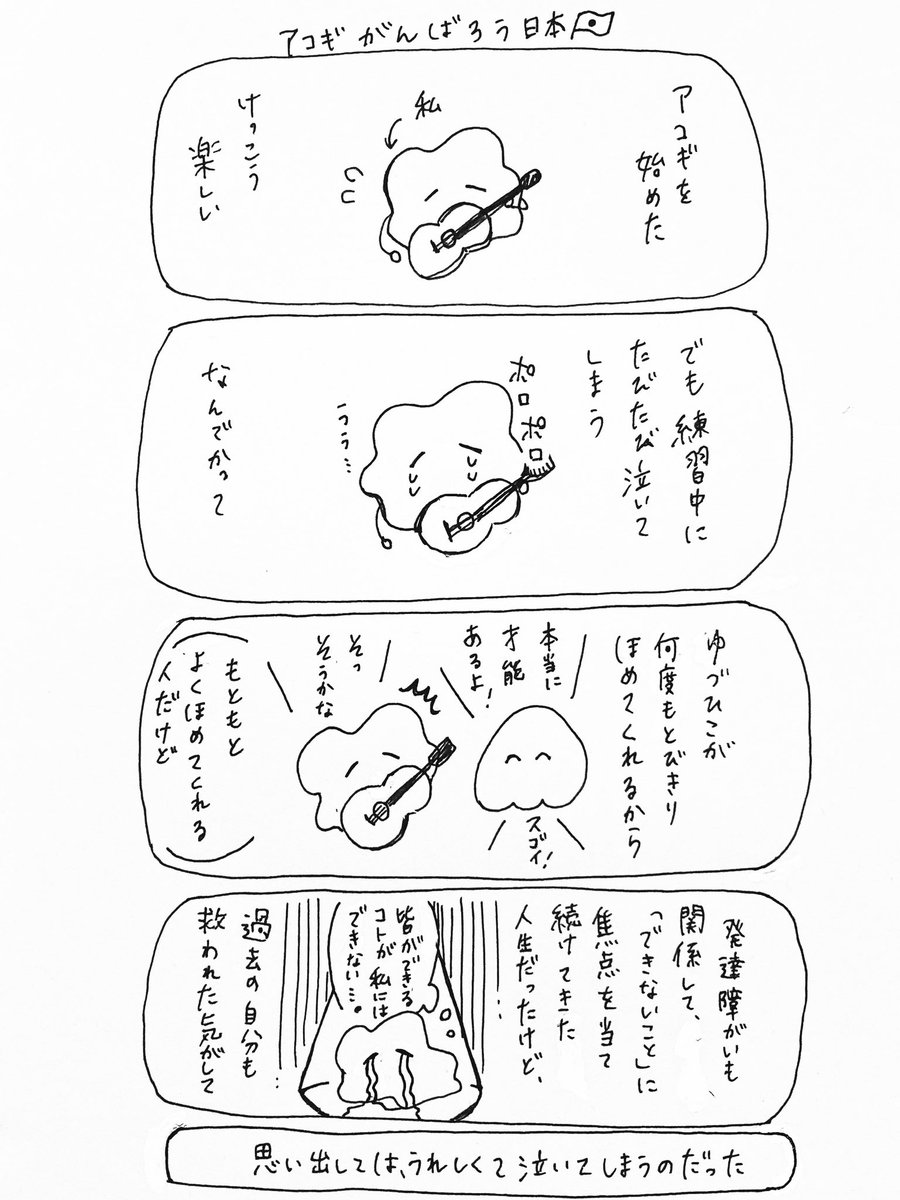 アコギがんばろう日本
アコギを
始めた
私
けっこう
楽しい
でも練習中に
たびたび泣いて
しまう
ポロ
ポロ
うう…
なんでかって
ゆづひこが
何度もとびきり
ほめてくれるから
本当に
才能
あるよ!
スゴイ!
そっ
そうかな
もともと
よくほめてくれる
人だけど
発達障がいも
関係して、
「できないこと」に
焦点を当て
続けてきた
人生だったけど、
皆ができる
コトが私には
できない…。
過去の自分も
救われた気がして
思い出しては、うれしくて泣いてしまうのだった